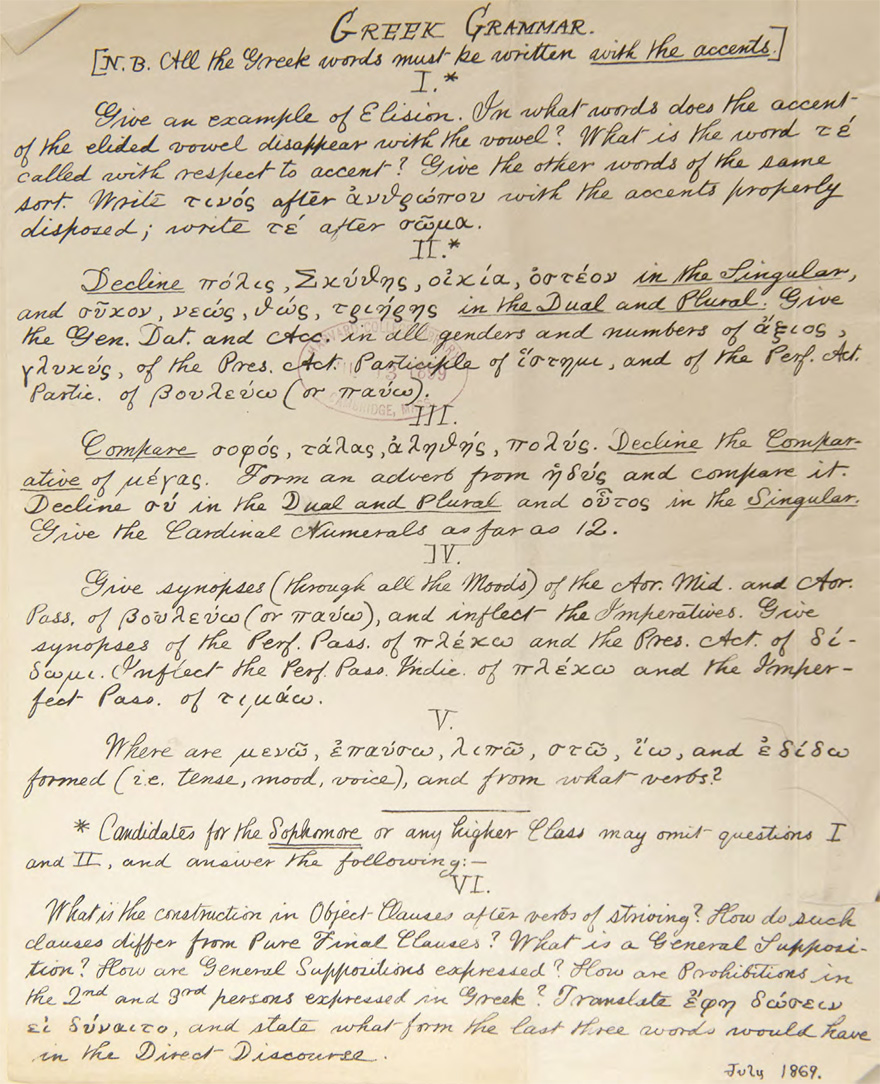 GREEK GRAMMAR.
[N.B. All the Greek words must be written with the accents.]
I.*
Give an example of Elision. In what words does the accent
of the elided vowel disappear with the vowel? What is the word τέ
called with respect to accent? Give the other words of the same
sort. Write τινός after ἀνθρώπου with the accents properly
disposed; write τέ after σῶμα.
II.*
Decline πόλις, Σκύθης, οἰκία, ὀστέον in the Singular,
and σῦκον, νεώς, θώς, τριήρης in the Dual and Plural. Give
the Gen. Dat. and Acc. in all genders and numbers of ἄξιος,
γλυκύς, of the Pres. Act. Participle of ἵστημι, and of the Perf. Act.
Partic. of βουλεύω (or παύω).
III.
Compare σοφός, τάλας, ἀληθής, πολύς. Decline the Compar-
ative of μέγας. Form an adverb from ἡδύς and compare it.
Decline σύ in the Dual and Plural and οὗτος in the Singular.
Give the Cardinal Numerals as far as 12.
IV.
Give synopses (through all the Moods) of the Aor. Mid. and Aor.
Pass. of βουλεύω (or παύω), and inflect the Imperatives. Give
synopses of the Perf. Pass. of πλέκω and the Pres. Act. of δί-
δωμι. Inflect the Perf. Pass. Indic. of πλέκω and the Imper-
fect Pass. of τιμάω.
V.
Where are μενῶ, ἐπαύσω, λιπῶ, στῶ, ἴω, and ἐδίδω
formed (i.e. tense, mood, voice), and from what verbs?
* Candidates for the Sophomore or any higher Class may omit questions I
and II, and answer the following:—
VI.
What is the construction in Object Clauses after verbs of striving? How do such
clauses differ from Pure Final Clauses? What is a General Supposi-
tion? How are General Suppositions expressed? How are Prohibitions in
the 2nd and 3rd persons expressed in Greek? Translate ἔφη δώσειν
εἰ δύναιτο, and state what form the last three words would have
in the Direct Discourse.
July 1869.